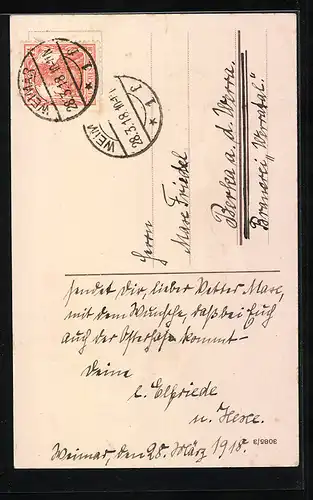 WEIMAR
28.3.18.10-11V
* 1 f
WEIM
28.3.18.10-11V
* 1 f
Herrn
Marc Friedel
Berka a. d. Werra.
Brauerei „Werratal“
sendet Dir, lieber Vetter Marc,
mit dem Wunsche, daß bei Euch
auch der Osterhase kommt –
Deine
Elfriede
u.
Weimar, den 28. März 1918.
3085/3